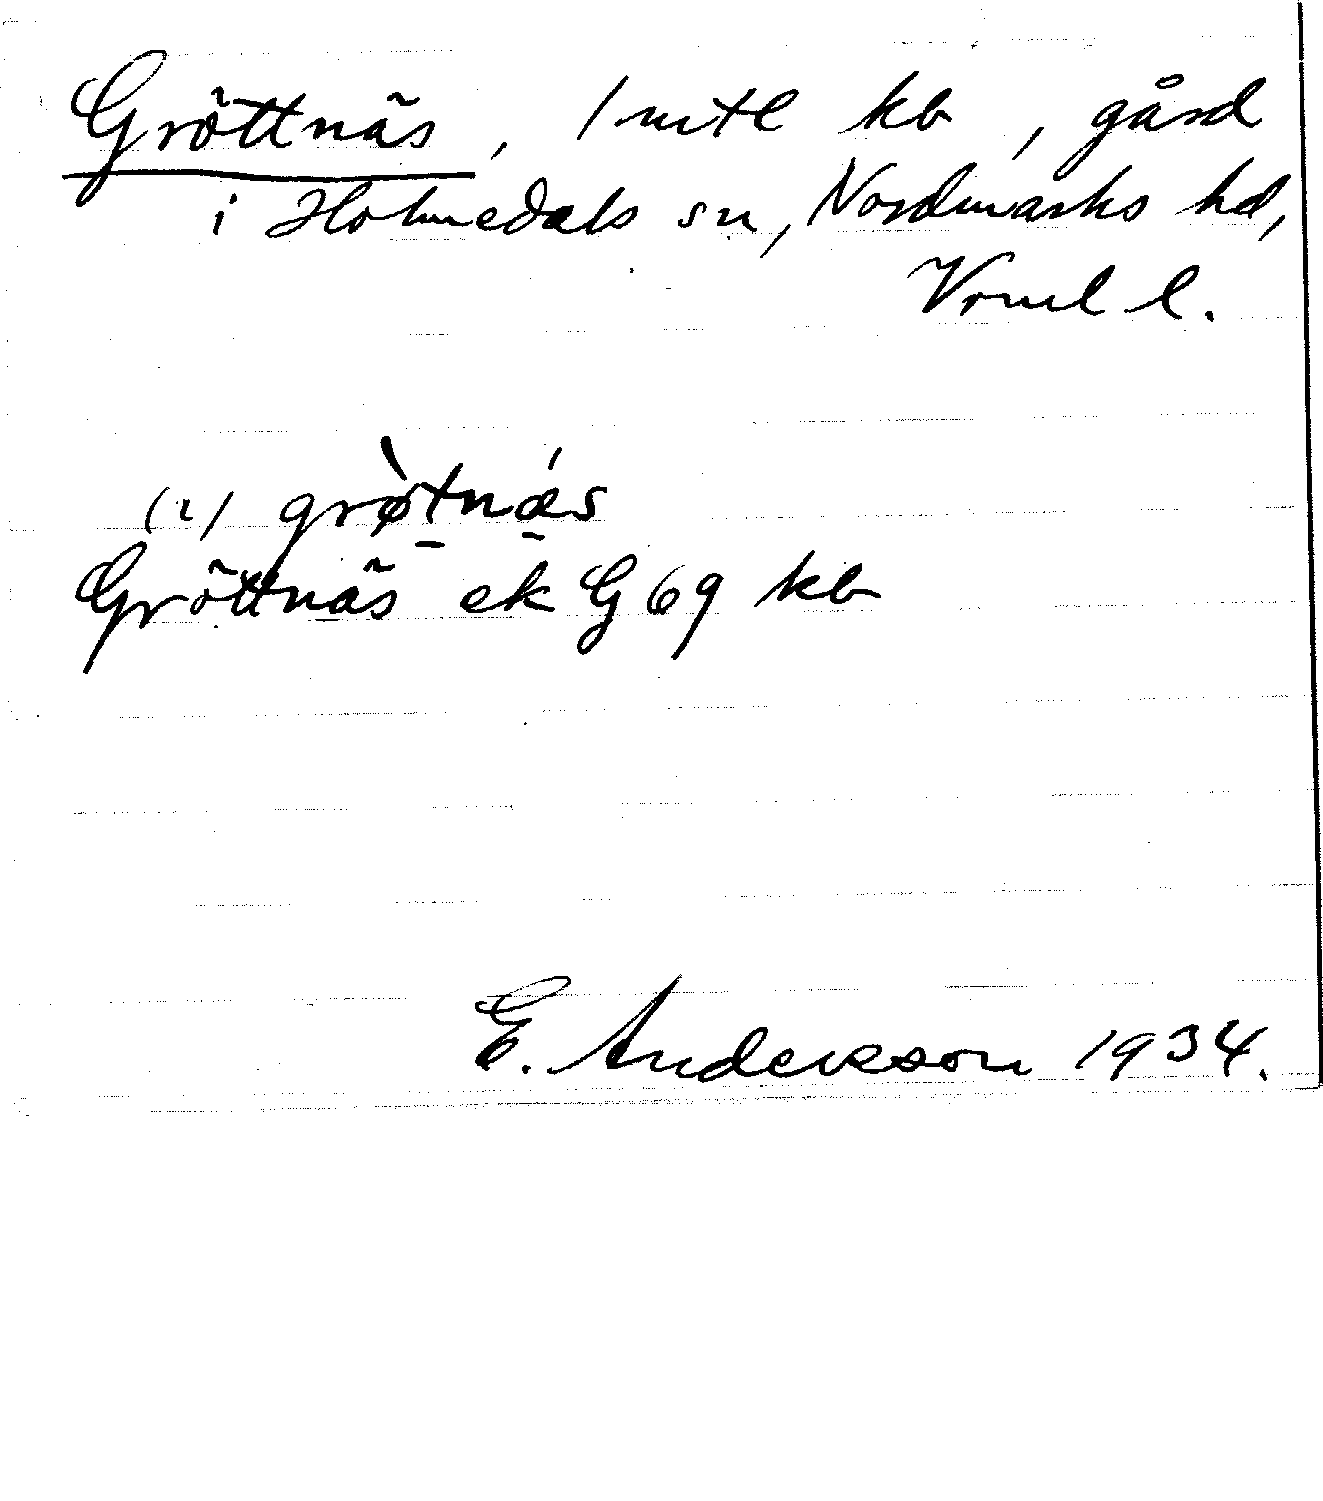 Gröttnäs, 1 mtl kb, gård
i Holmedals sn, Nordmarks hd,
Vrml l.
(2) grø̀tnǽs
Gröttnäs ek G 69 kb
E. Andersson 1934.